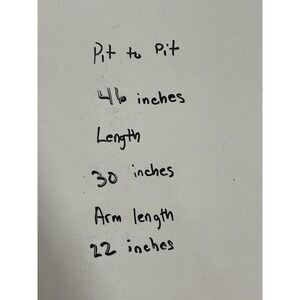 Pit to Pit
46 inches
Length
30 inches
Arm length
22 inches